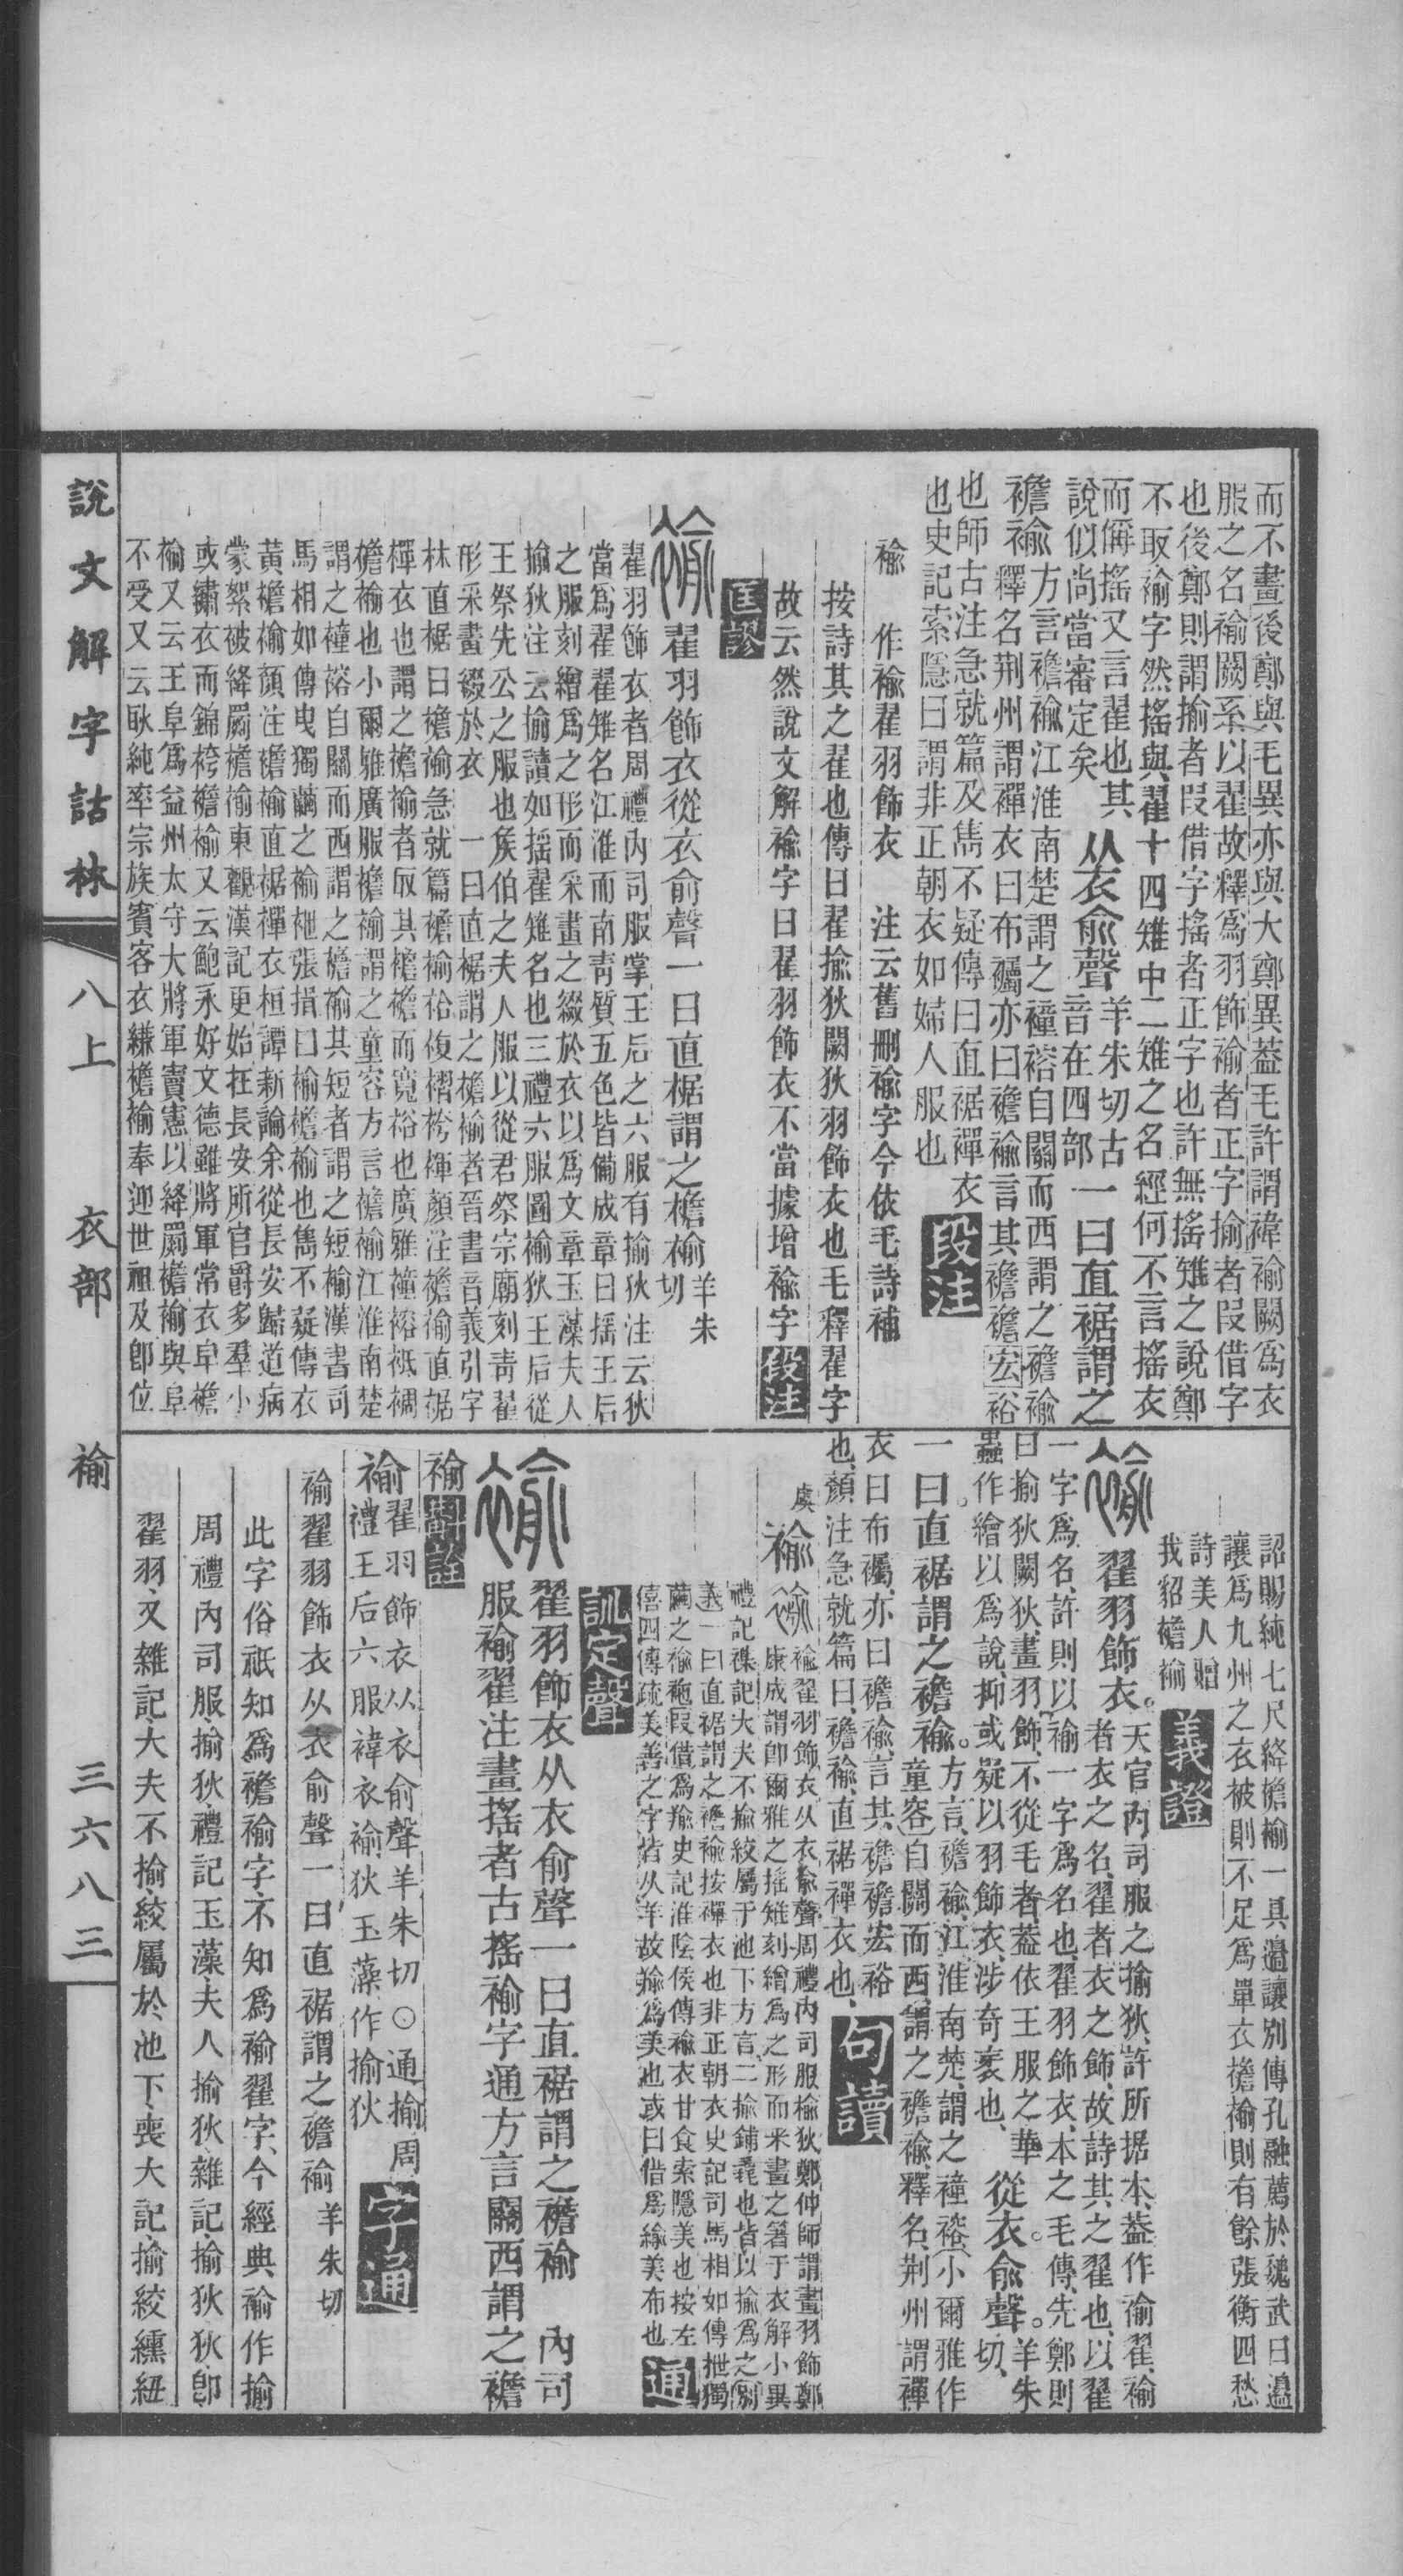 而不畫後鄭與毛異亦與大鄭異葢毛許謂褘褕闕爲衣
服之名褕闕系以翟故釋爲羽飾褕者正字揄者叚借字
也後鄭則謂揄者叚借字搖者正字也許無搖雉之說鄭
不取褕字然搖與翟十四雉中二雉之名經何不言搖衣
而偁搖又言翟也其
說似尚當審定矣
从衣俞聲
羊朱切古
音在四部
一曰直裾謂之
襜褕
方言襜褕江淮南楚謂之襌裕自關而西謂之襜褕
釋名荆州謂襌衣曰布襹亦曰襜褕言其襜襜宏裕
也師古注急就篇及雋不疑傳曰直裾襌衣
也史記索隱曰謂非正朝衣如婦人服也
段注
褕 作褕翟羽飾衣 注云舊刪褕字今依毛詩補
按詩其之翟也傳曰翟揄狄闕狄羽飾衣也毛釋翟字
故云然說文解褕字曰翟羽飾衣不當據增褕字
段注
匡謬
翟羽飾衣從衣俞聲一曰直裾謂之襜褕
羊朱
切
翟羽飾衣者周禮內司服掌王后之六服有揄狄注云狄
當爲翟翟雉名江淮而南靑質五色皆備成章曰搖王后
之服刻繒爲之形而采畫之綴於衣以爲文章玉藻夫人
揄狄注云揄讀如搖翟雉名也三禮六服圖褕狄王后從
王祭先公之服也矦伯之夫人服以從君祭宗廟刻靑翟
形采畫綴於衣 一曰直裾謂之襜褕者晉書音義引字
林直裾曰襜褕急就篇襜褕袷複褶袴褌顏注襜褕直裾
襌衣也謂之襜褕者取其襜襜而寬裕也廣雅襱裕袛裯
襜褕也小爾雅廣服襜褕謂之童容方言襜褕江淮南楚
謂之襱裕自關而西謂之襜褕其短者謂之短褕漢書司
馬相如傳曳獨繭之褕袘張揖曰褕襜褕也雋不疑傳衣
黃襜褕顏注襜褕直裾襌衣桓譚新論余從長安歸道病
蒙絮被絳罽襜褕東觀漢記更始在長安所官爵多羣小
或繡衣而錦袴襜褕又云鮑永好文德雖將軍常衣皁襜
褕又云王阜爲益州太守大將軍竇憲以絳罽襜褕與阜
不受又云耿純率宗族賓客衣縑襜褕奉迎世祖及卽位
詔賜純七尺絳襜褕一具邉讓別傳孔融薦於魏武曰邉
讓爲九州之衣被則不足爲單衣襜褕則有餘張衡四愁
詩美人贈
我貂襜褕
義證
翟羽飾衣
天官內司服之揄狄許所据本葢作褕翟褕
者衣之名翟者衣之飾故詩其之翟也以翟
一字爲名許則以褕一字爲名也翟羽飾衣本之毛傳先鄭則
曰揄狄闕狄畫羽飾不從毛者葢依王服之華
蟲作繪以爲說抑或疑以羽飾衣涉奇衺也
從衣俞聲
羊朱
切
一曰直裾謂之襜褕
方言襜褕江淮南楚謂之襱裕小爾雅作
童容自關而西謂之襜褕釋名荆州謂襌
衣曰布襹亦曰襜褕言其襜襜宏裕
也顏注急就篇曰襜褕直裾襌衣也
句讀
虞
褕
褕翟羽飾衣从衣俞聲周禮內司服揄狄鄭仲師謂畫羽飾鄭
康成謂卽爾雅之搖雉刻繒爲之形而采畫之著于衣解小異
禮記襍記大夫不揄絞屬于池下方言二揄鋪毳也皆以揄爲之別
義一曰直裾謂之襜褕按襌衣也非正朝衣史記司馬相如傳抴獨
繭之褕袘叚借爲羭史記淮陰侯傳褕衣甘食索隱美也按左
僖四傳疏美善之字皆从羊故羭爲美也或曰借爲緰美布也
通
訓定聲
翟羽飾衣从衣俞聲一曰直裾謂之襜褕 內司
服褕翟注畫搖者古搖褕字通方言關西謂之襜
褕
斠詮
褕
翟羽飾衣从衣俞聲羊朱切○通揄周
禮王后六服褘衣褕狄玉藻作揄狄
字通
褕翟羽飾衣从衣俞聲一曰直裾謂之襜褕
羊朱切
此字俗祇知爲襜褕字不知爲褕翟字今經典褕作揄
周禮內司服揄狄禮記玉藻夫人揄狄雜記揄狄狄卽
翟羽又雜記大夫不揄絞屬於池下喪大記揄絞纁紐
說文解字詁林
八上 衣部 褕
三六八三